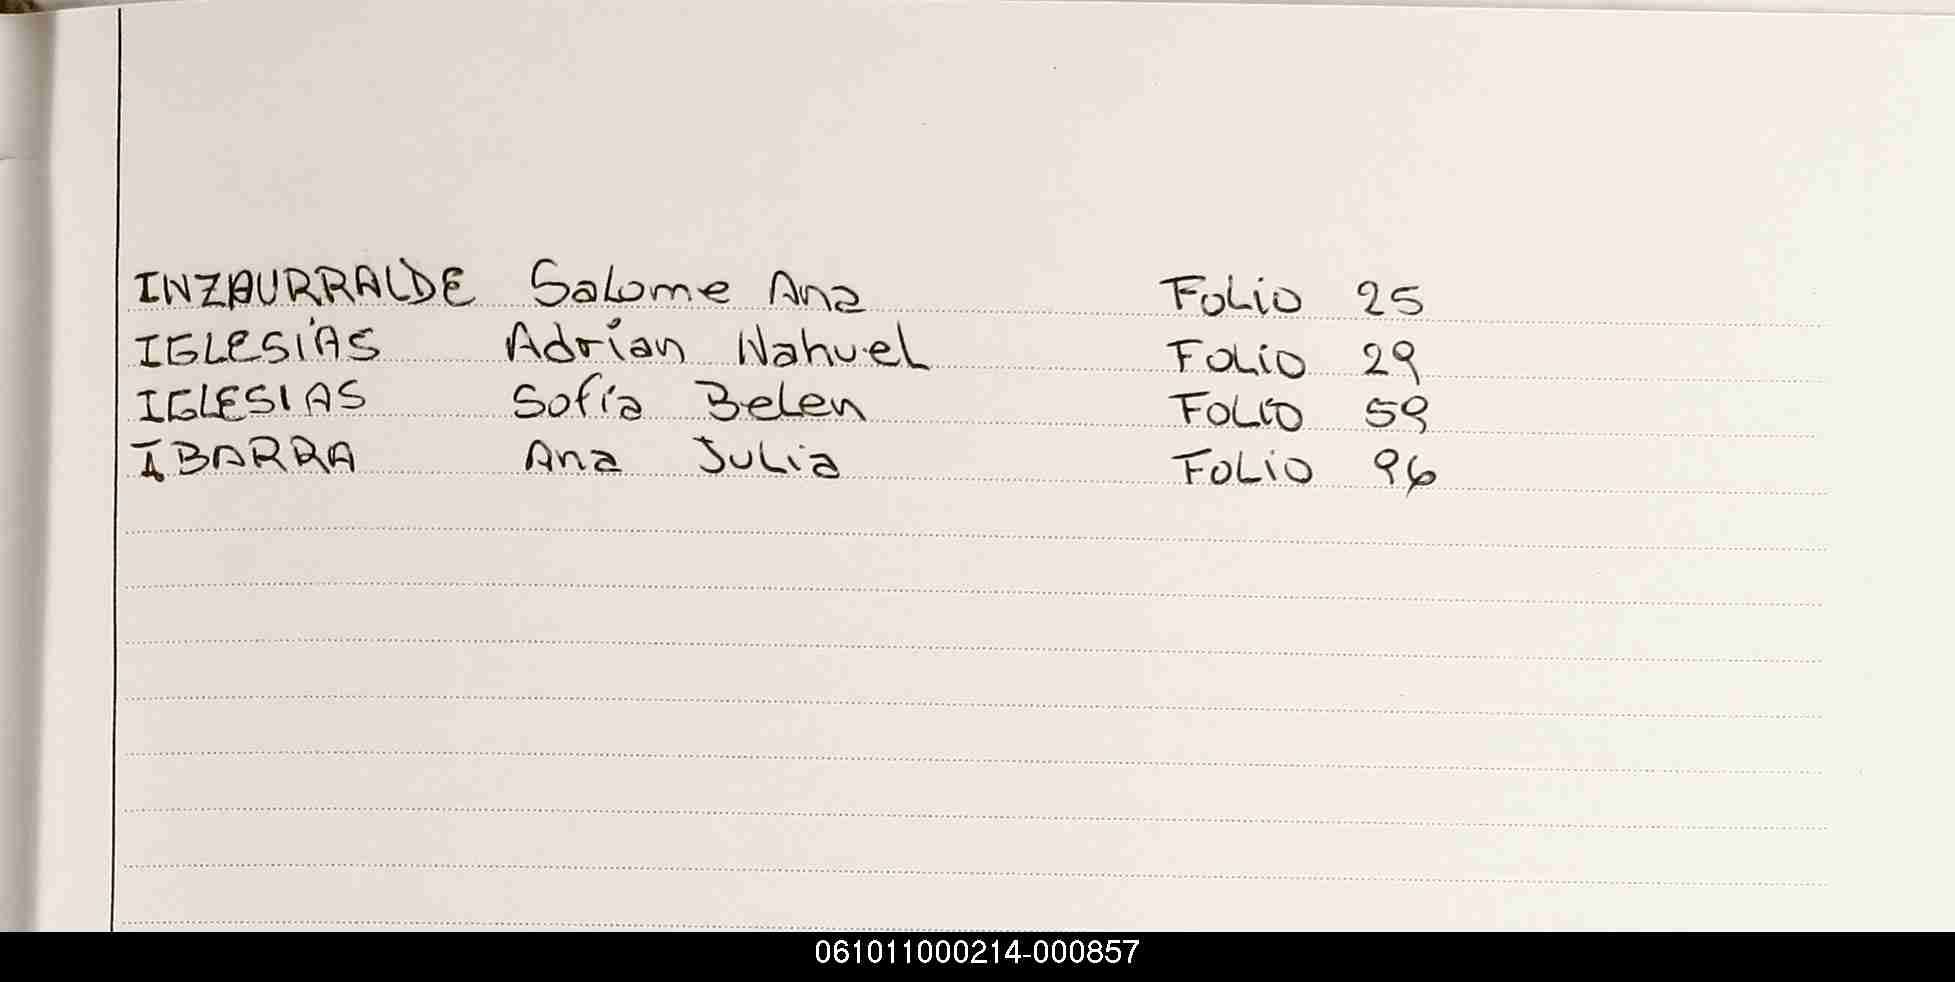 INZAURRALDE Salome Ana Folio 25
IGLESIAS Adrian Nahuel Folio 29
IGLESIAS Sofía Belen Folio 59
IBARRA Ana Julia Folio 96
061011000214-000857